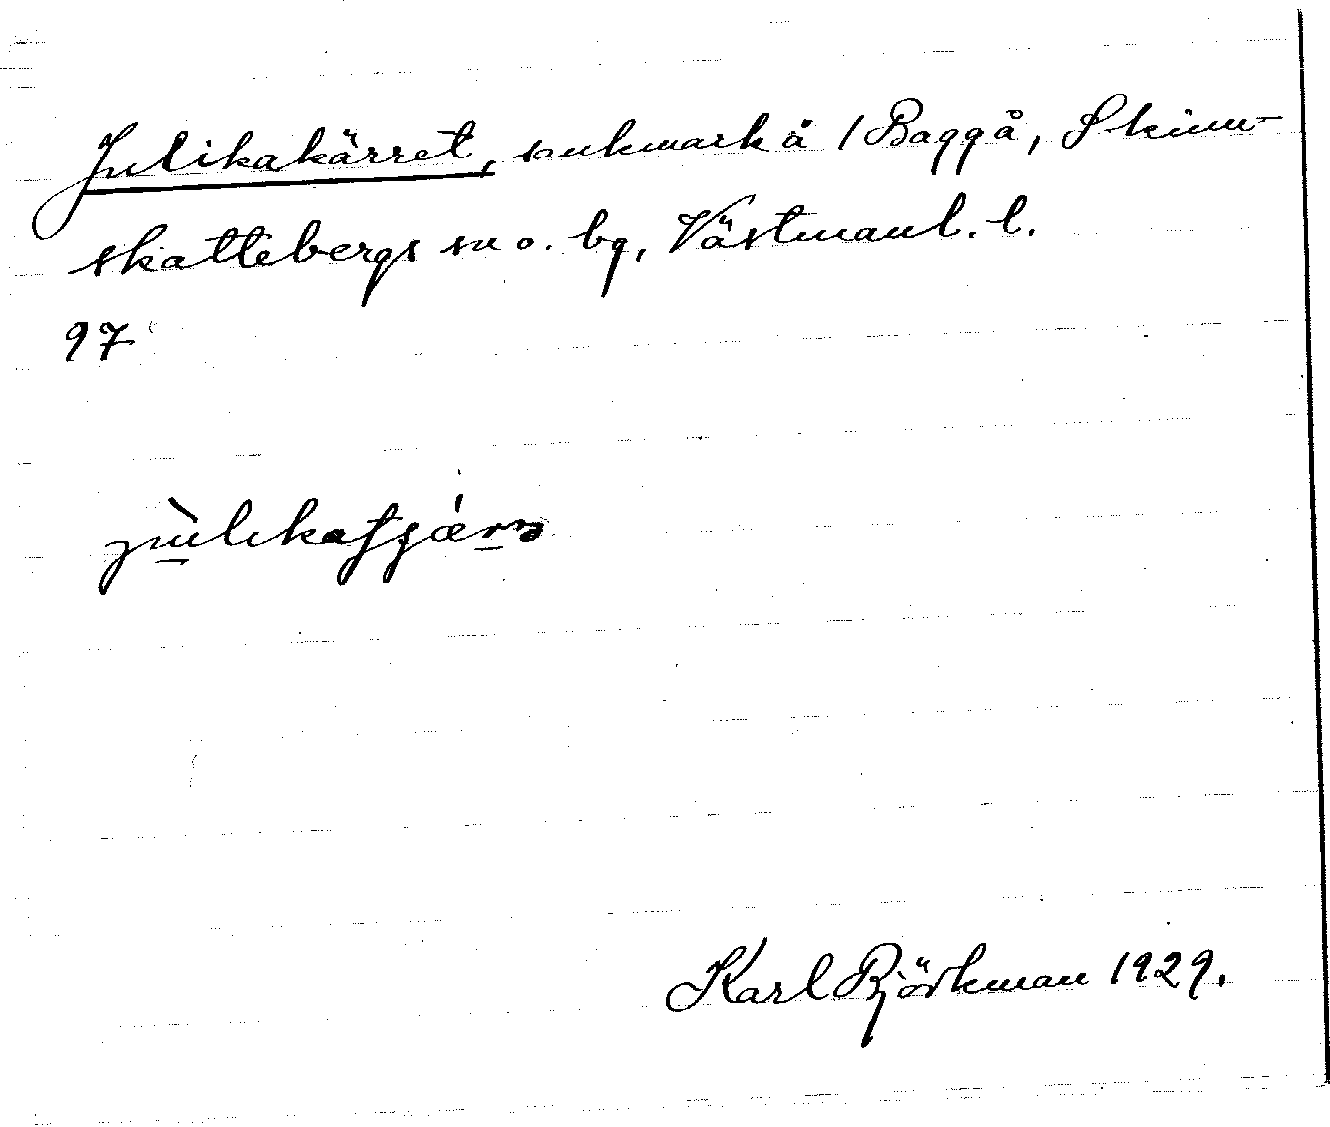 Julikakärret, sankmark å 1 Baggå, Skinn-
skattebergs sn o. bg, Västmanl. l.
97
Karl Björkman 1929.